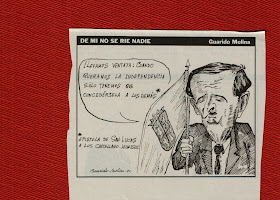 DE MI NO SE RIE NADIE
Guarido Molina
¡LLEVAIS VENTAJA: CUANDO
QUERAMOS LA INDEPENDENCIA
SOLO TENEMOS QUE
CONCEDÉRSELA A LOS DEMÁS!
*EPÍSTOLA DE SAN LUCAS
A LOS CATALANO